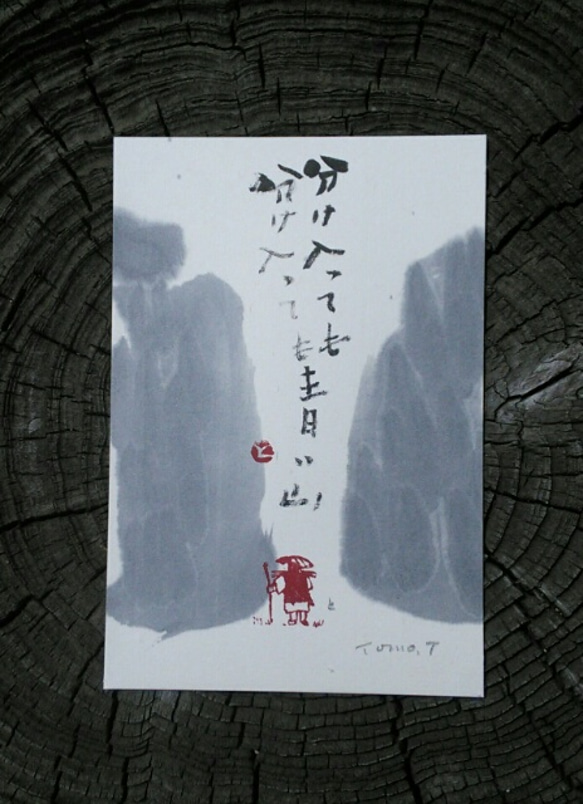 分け入っても
分け入っても青い山
と
Tomo.T